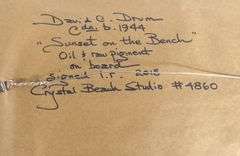 David C. Drum
Cdn. b. 1944
"Sunset on the Bench"
Oil & raw pigment
on board
Signed l.r. 2015
Crystal Beach Studio #4860